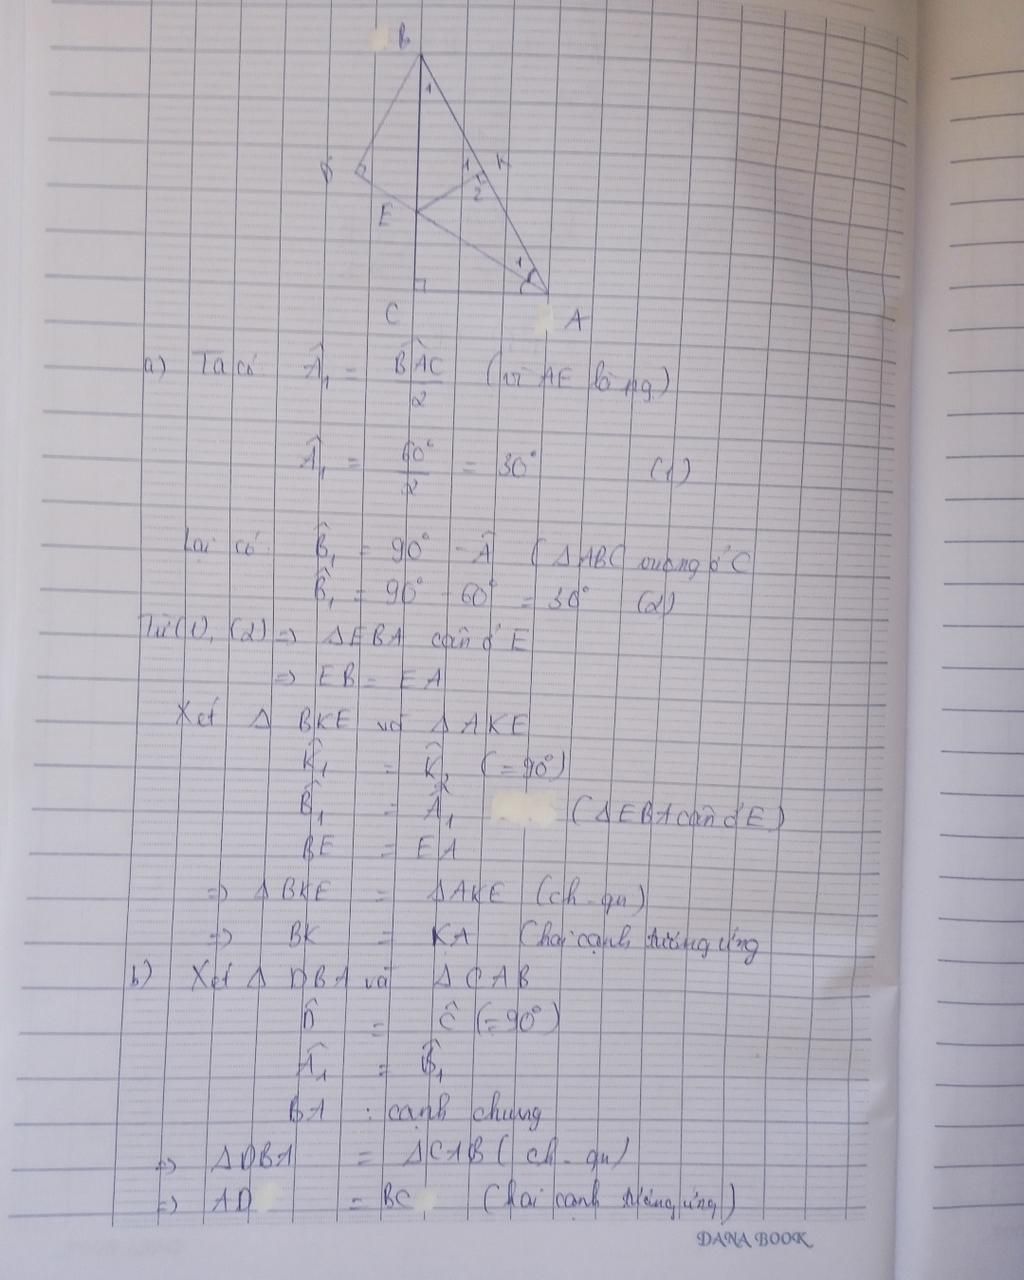 B
1
D
K
1
2
E
1
C
A
a) Ta có Â₁ = BÂC/2 (vì AE là pg)
Â₁ = 60°/2 = 30° (1)
Lại có B̂₁ = 90° - Â (ΔABC vuông ở C
B̂₁ = 90° - 60° = 30° (2)
Từ (1), (2) => ΔEBA cân ở E
=> EB = EA
Xét Δ BKE và Δ AKE
K̂₁ = K̂₂ (= 90°)
B̂₁ = Â₁ (ΔEBA cân ở E)
BE = EA
=> Δ BKE = ΔAKE (ch - gn)
=> BK = KA (hai cạnh tương ứng
b) Xét Δ DBA và Δ CAB
D̂ = Ĉ (= 90°)
Â₁ = B̂₁
BA : cạnh chung
=> ΔDBA = ΔCAB (ch - gn)
=> AD = BC (hai cạnh tương ứng)
DANA BOOK